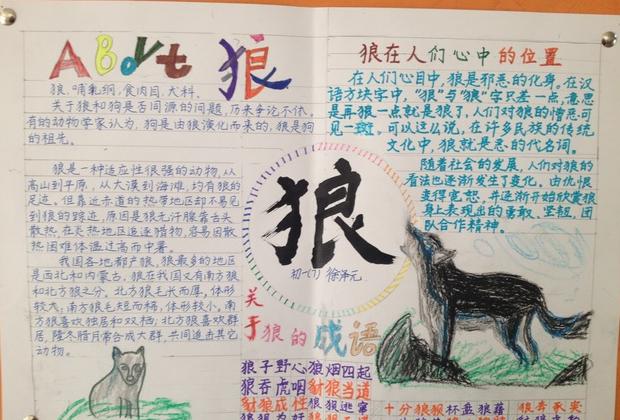 About 狼
狼,哺乳纲,食肉目,犬科。
关于狼和狗是否同源的问题,历来争论不休,
有的动物学家认为,狗是由狼演化而来的,狼是狗
的祖先。
狼是一种适应性很强的动物,从
高山到平原,从大漠到海滩,均有狼的
足迹。但靠近赤道的热带地区却不易见
到狼的踪迹,原因是狼无汗腺靠舌头
散热,在炎热地区追逐猎物,容易因散
热困难体温过高而中暑。
我国各地都产狼,狼最多的地区
是西北和内蒙古,狼在我国又有南方狼
和北方狼之分。北方狼毛长而厚,体形
较大;南方狼毛短而稀,体形较小。南
方狼喜欢独居和双栖;北方狼喜欢群
居,隆冬腊月常合成大群,共同追击其它
动物。
狼
初一(7) 徐泽元
狼在人们心中的位置
在人们心目中,狼是邪恶的化身。在汉
语方块字中,“狠”与“狼”字只差一点,意思
是再狠一点就是狼了,人们对狼的憎恶可
见一斑,可以这么说,在许多民族的传统
文化中,狼就是恶的代名词。
随着社会的发展,人们对狼的
看法也逐渐发生了变化。由仇恨
变得宽恕,并逐渐开始欣赏狼
身上表现出的勇敢、坚韧、团
队合作精神。
关于狼的成语
狼子野心 狼烟四起
狼吞虎咽 豺狼当道
豺狼成性 狼狈逃窜
十分狼狈 杯盘狼藉